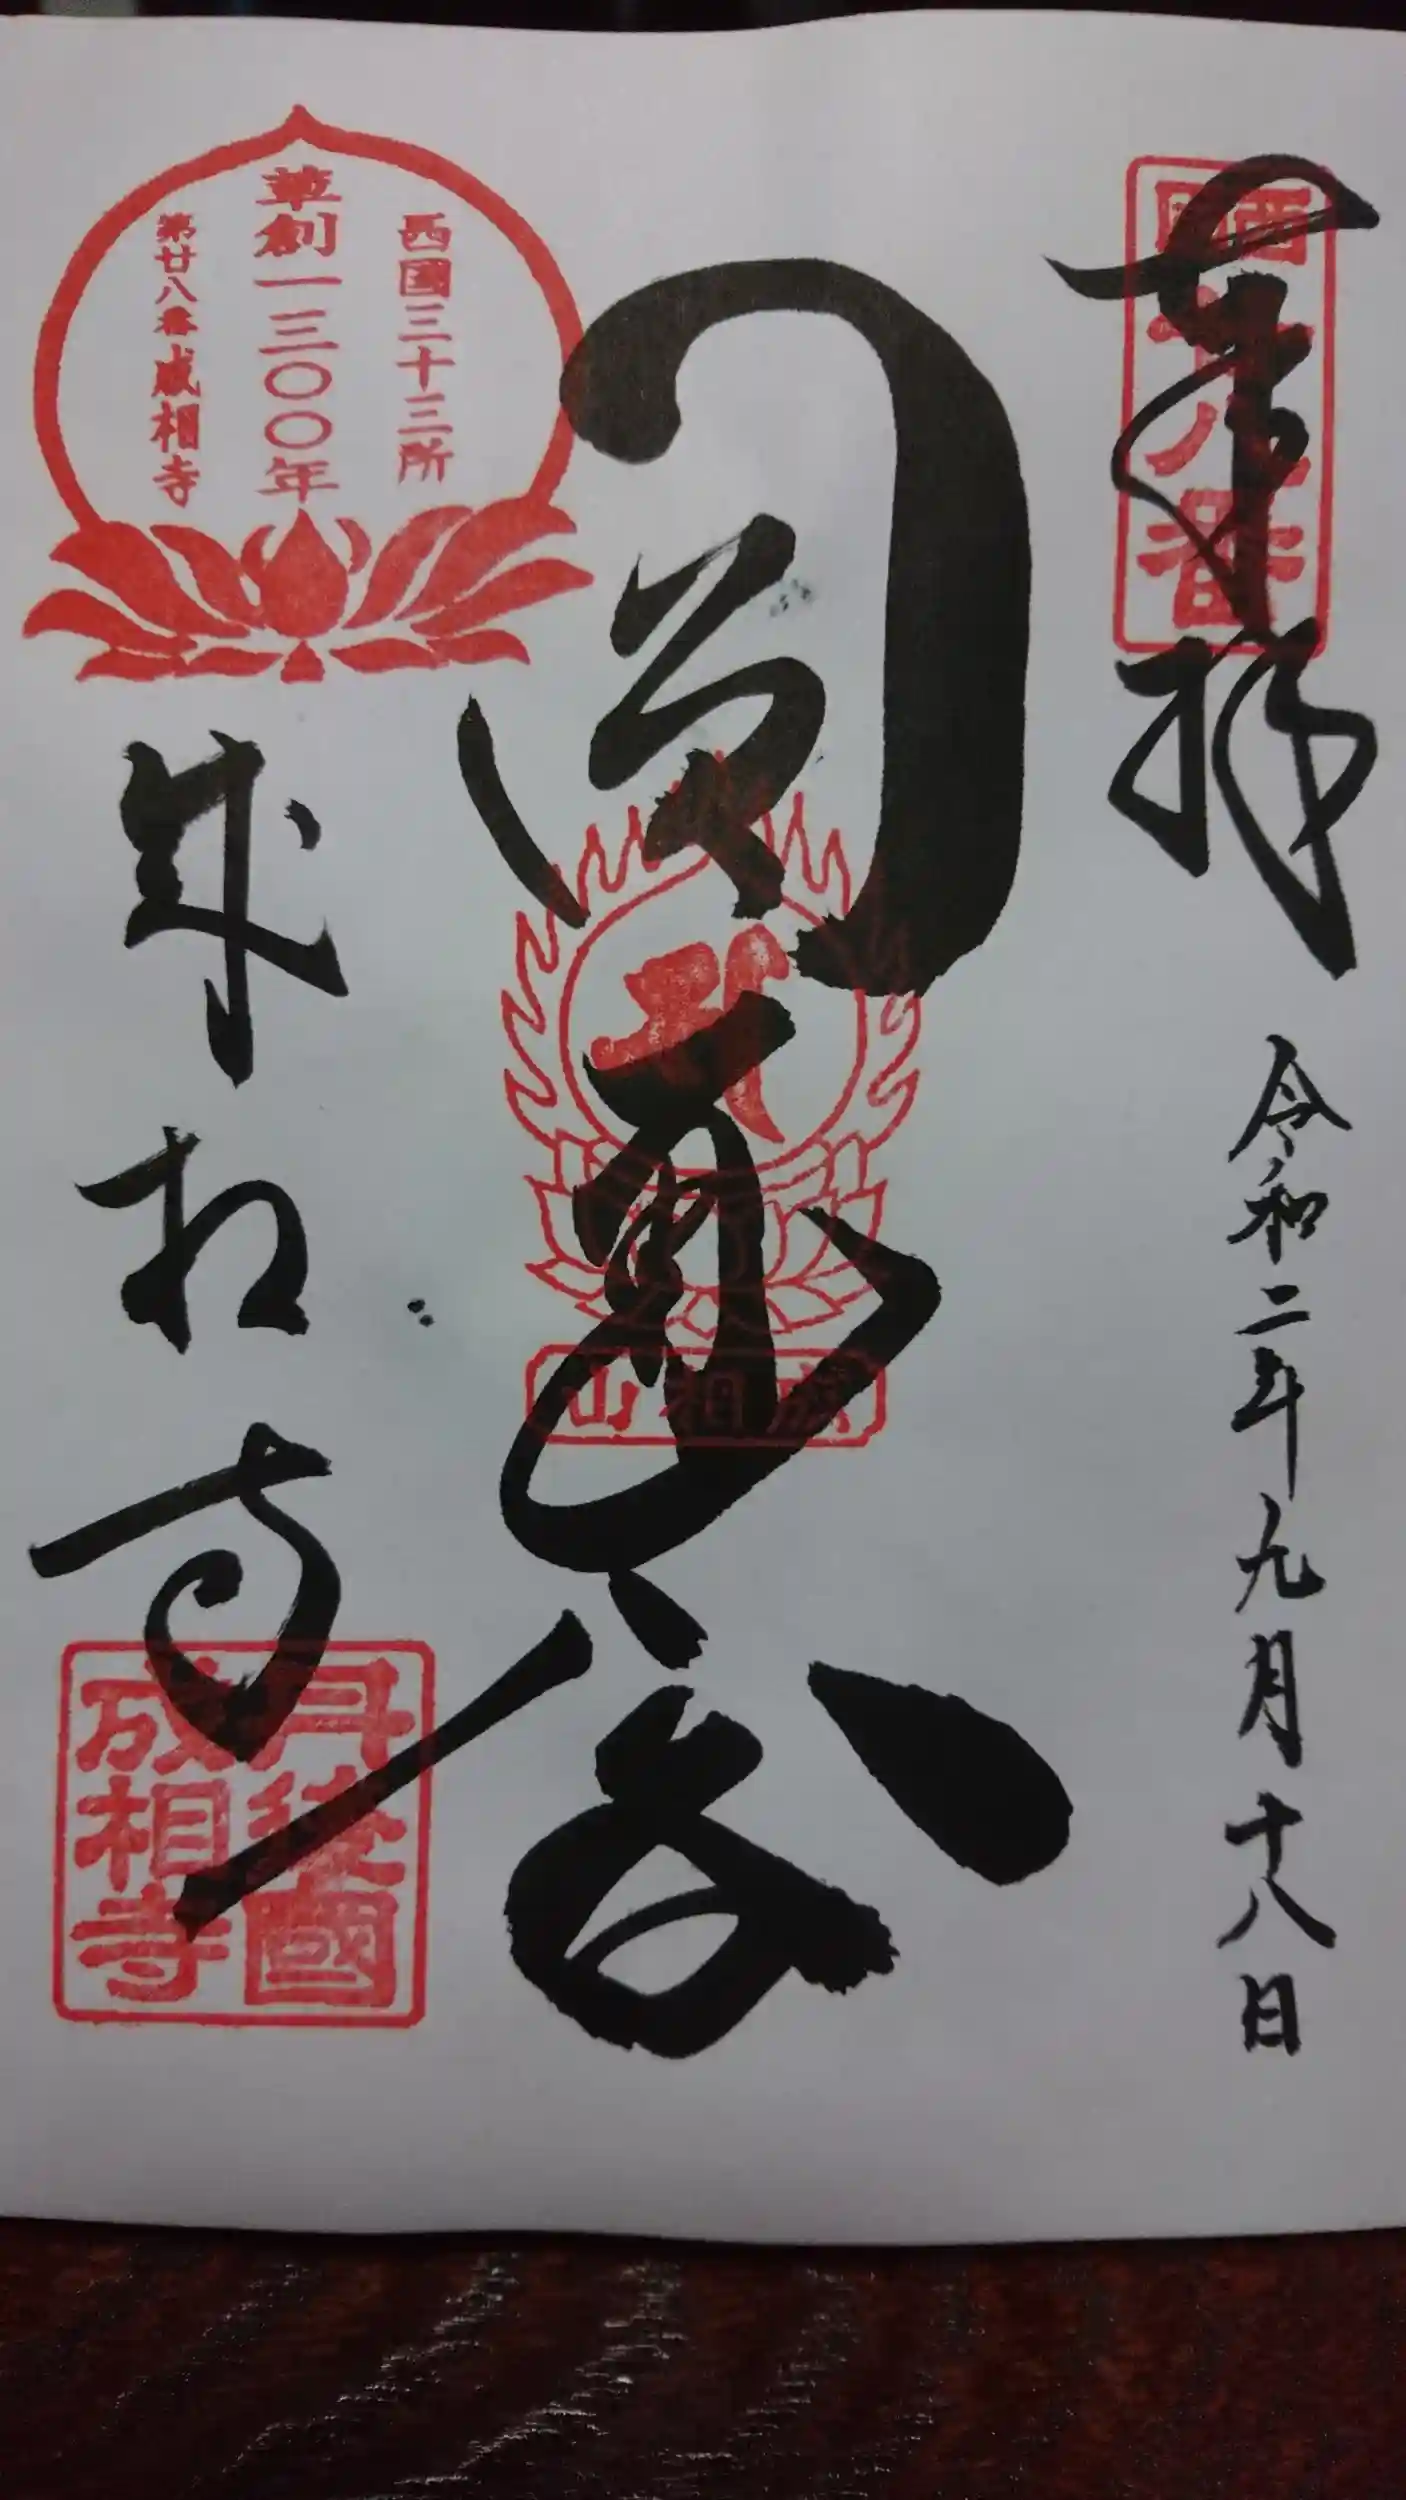 奉拝
西国廿八番
令和二年九月十八日
圓通閣
成相山
西國三十三所
草創一三〇〇年
第廿八番成相寺
成相寺
丹後國
成相寺